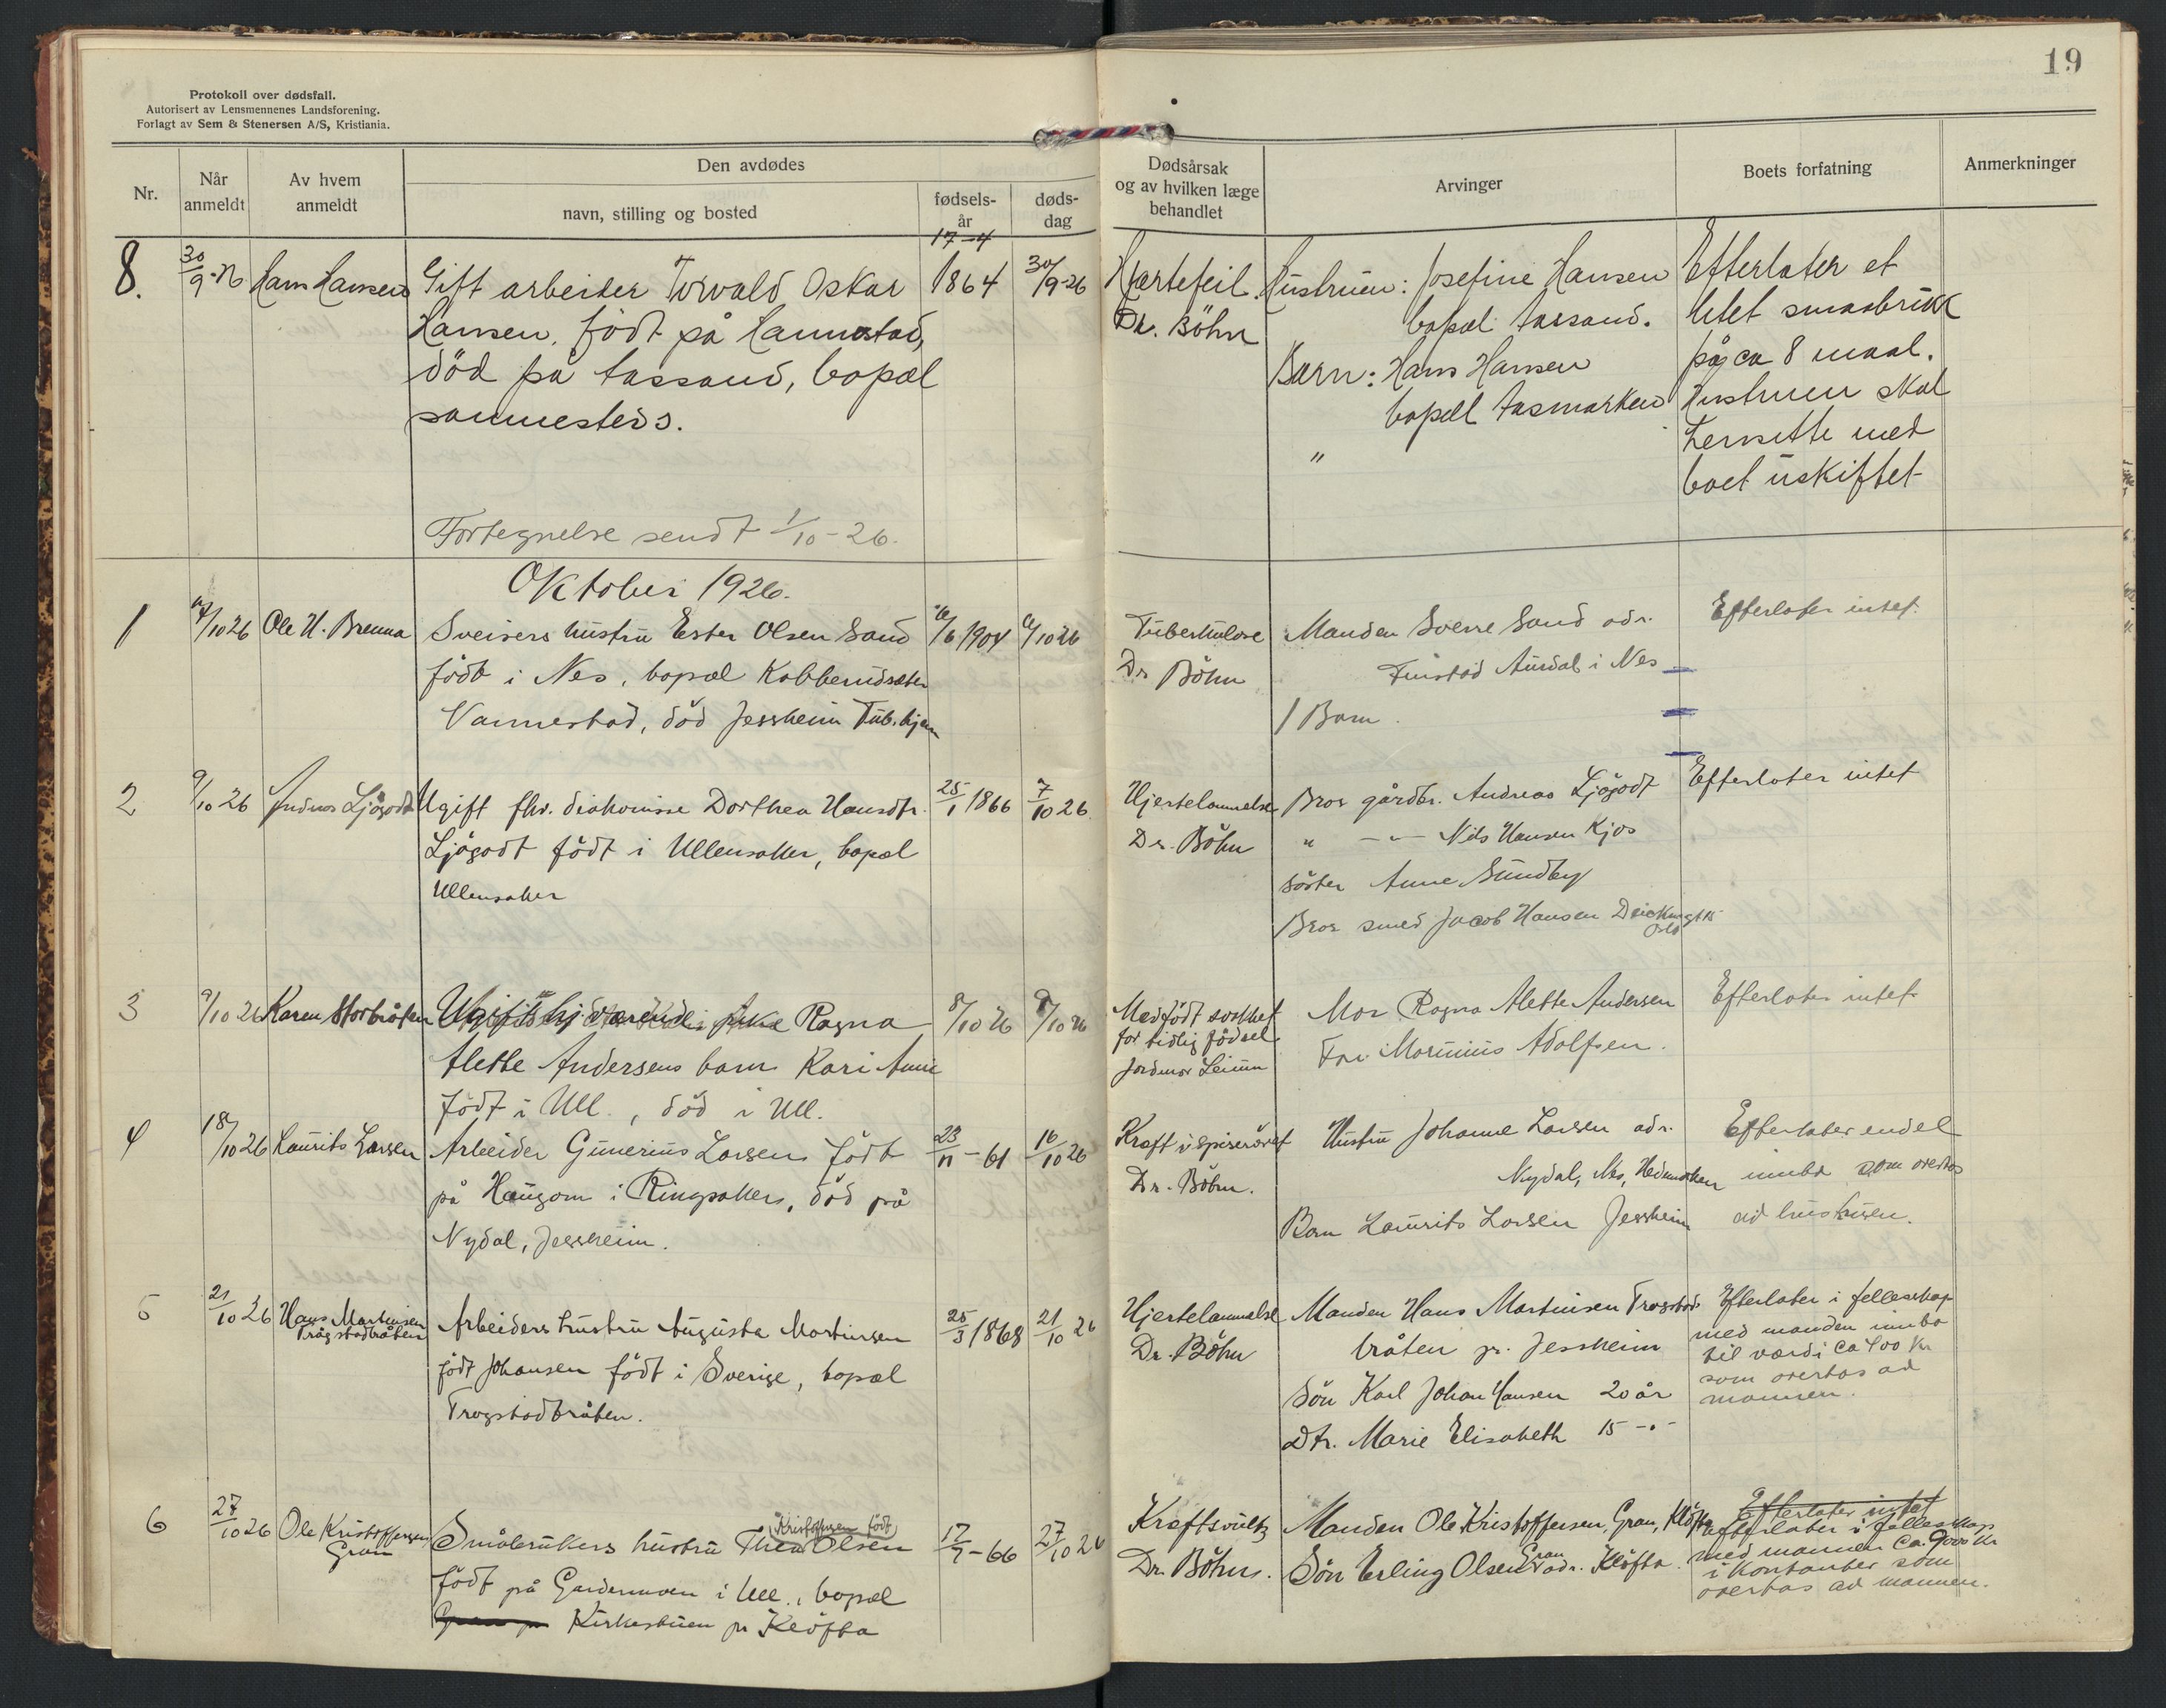 19
Protokoll over dødsfall.
Autorisert av Lensmennenes Landsforening.
Forlagt av Sem & Stenersen A/S, Kristiania.
Nr.
Når anmeldt
Av hvem anmeldt
Den avdødes
navn, stilling og bosted
fødsels-år
døds-dag
Dødsårsak og av hvilken læge behandlet
Arvinger
Boets forfatning
Anmerkninger
8.
30/9-26
Hans Hansen
Gift arbeider Torvald Oskar
Hansen, født på Hannestad,
död på Aassand, bopæl
sammesteds.
17-4
1864
30/9-26
Hjærtefeil.
Dr. Böhn
Hustruen: Josefine Hansen
bopæl Aassand.
Barn: Hans Hansen
bopæll Aasmarken
"
Efterlater et
litet smaabruk
på ca 8 maal.
Hustruen skal
hensitte med
boet uskiftet
Fortegnelse sendt 1/10-26.
Oktober 1926.
1
/10 26
Ole H. Brenna
Sveisers hustru Ester Olsen Sand
födt i Nes, bopæl Kobberudsæter
Vannestad, död Jessheim Tub. hjem
/6 1904
/10 26
Tuberkulose
Dr Böhn
Manden Sverre Sand adr.
Finstad Aurdal i Nes
1 Barn.
Efterlater intet.
2
9/10 26
Andreas Ljögodt
Ugift fhv. diakonisse Dorthea Hansdtr.
Ljögodt födt i Ullensaker, bopæl
Ullensaker
25/1 1866
7/10 26.
Hjertelammelse
Dr. Böhn
Bror gårdbr. Andreas Ljögodt
" - " - Nils Hansen Kjos
söster Anne Sundby
Bror smed Jacob Hansen gt 15
Oslo
Efterlater intet
3
9/10 26
Karen Storbråten
Ragna
Alette Andersens barn Kari Anne
födt i Ull., död i Ull.
8/10 26
8/10 26
Medfödt svakhet
for tidlig födsel
Jordmor
Mor Ragna Alette Andersen
Far Marinius Adolfsen.
Efterlater intet
4
18/10 26
Laurits Larsen
Arbeider Gunerius Larsen födt
på Haugom i Ringsaker, död på
Nydal, Jessheim.
23/11 - 61
16/10 26
Kræft i spiseröret
Dr. Böhn.
Hustru Johanne Larsen adr.
Nydal, Nes, Hedmarken
Barn Laurits Larsen Jessheim
Efterlater endel
innbo som overtas
ad hustruen.
5
21/10 26
Hans Martinsen
Trögstadbråten
Arbeiders hustru Augusta Martinsen
födt Johansen födt i Sverige, bopæl
Trogstadbråten.
25/3 1868
21/10 26
Hjertelammelse
Dr. Böhn
Manden Hans Martinsen Trogstad-
bråten pr. Jessheim
Sön Karl Johan Hansen 20 år
Dtr. Marie Elisabeth 15 - " -
Efterlater i fellesskap
med manden innbo
til værdi ca 400 kr
som overtas ad
mannen.
6
27/10 26
Ole Kristoffersen
Gran
Kristoffersen födt
Småbrukers hustru Thea Olsen
födt på Gardermoen i Ull., bopæl
Gran pr Kirkestuen pr Klöfta
17/7 - 66
27/10 26
Kræftsvulst
Dr. Böhn.
Manden Ole Kristoffersen, Gran, Klöfta
Sön Erling Olsen Gran adr. Klöfta.
Efterlater intet
Efterlater i fellesskap
med mannen ca. 9000 kr
i kontanter som
overtas ad mannen.